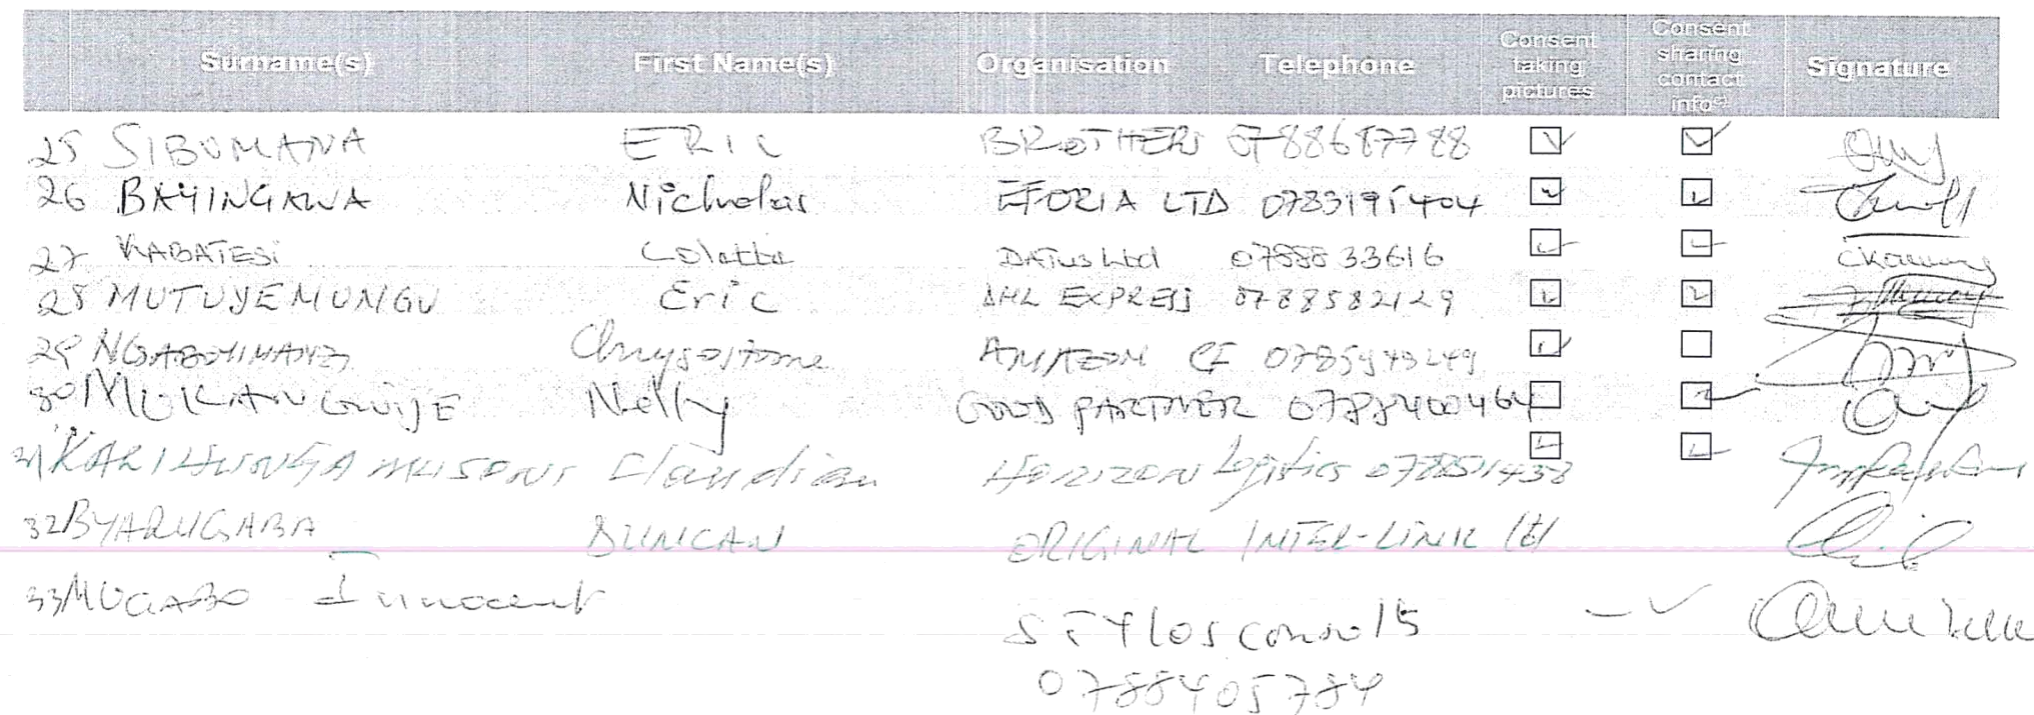 Surname(s) First Name(s) Organisation Telephone Consent taking pictures Consent sharing contact info Signature
25 SIBOMANA ERIC BROTHERS 0788687788
26 BAYINGANA Nicholas EFORIA LTD 0783195404
27 KABATESi Colette DATUS Ltd 0788833616
28 MUTUYEMUNGU Eric DHL EXPRESS 0788582129
29 Chrysostome AMAZON
30 Nelly GOOD PARTNER 0788400464
31 MUSONI Claudian HORIZON Logistics
32 BYARUGABA DUNCAN ORIGINAL INTER-LINK Ltd
33 MUGABO Innocent
0788405784